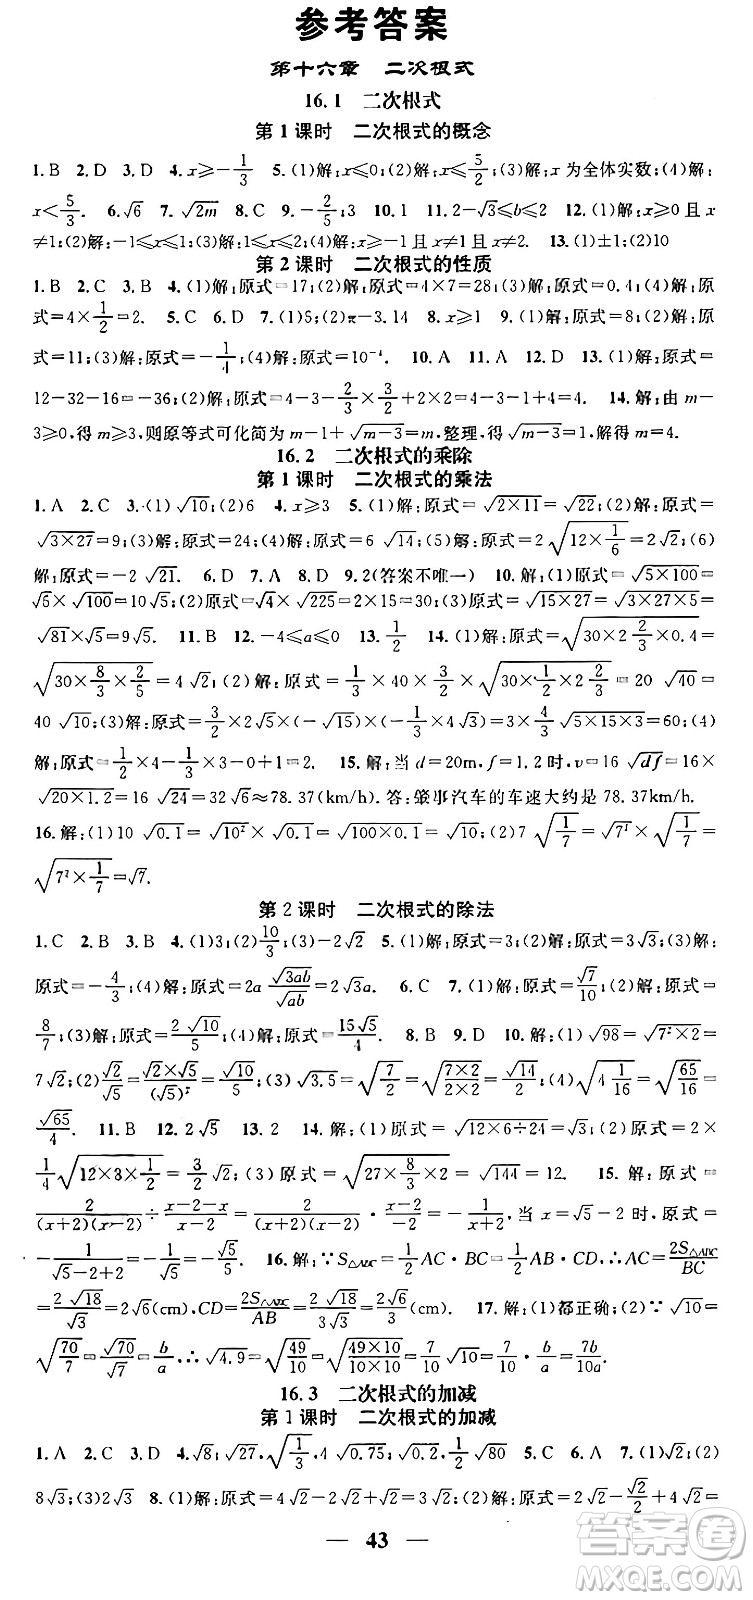 参考答案
第十六章　二次根式
16.1　二次根式
第1课时　二次根式的概念
1. B  2. D  3. D  4. x≥-1/3  5. (1)解:x≤0;(2)解:x≤5/2;(3)解:x 为全体实数;(4)解:
x<5/3.  6. √6  7. √2m  8. C  9. -2/5;3  10. 1  11. 2-√3≤b≤2  12. (1)解:x≥0且x
≠1;(2)解:-1≤x≤1且x≠0.  13. (1)±1;(2)10
第2课时　二次根式的性质
1. B  2. C  3. B  4. (1)解:原式=17;(2)解:原式=4×7=28;(3)解:原式=0.4;(4)解:原
式=4×1/2=2.  5. C  6. D  7. (1)5;(2)π-3.14  8. x≥1  9. (1)解:原式=8;(2)解:原式=
1/4;(3)解:原式=10⁻⁴.  10. A  11. A  12. B  13. (1)解:原式=
12-32-16=-36;(2)解:原式=4-3-2/3×3/2+2=4-3-1+2=2.  14. 解:由 m-
3≥0,得 m≥3,则原等式可化简为 m-1+√(m-3)=m,整理,得√(m-3)=1,解得 m=4.
16.2　二次根式的乘除
第1课时　二次根式的乘法
1. A  2. C  3. (1)√10;(2)6  4. x≥3  5. (1)解:原式=√(2×11)=√22;(2)解:原式=
√(3×27)=9;(3)解:原式=24;(4)解:原式=6√14;(5)解:原式=2√(12×1/6)=2√2;(6)
解:原式=-2√21.  6. D  7. A  8. D  9. 2(答案不唯一)  10. (1)解:原式=√(5×100)=
√5×√100=10√5;(2)解:原式=√4×√225=2×15=30;(3)解:原式=√(15×27)=√(3×27×5)=
√81×√5=9√5.  11. B  12. -4≤a≤0  13. 1/2  14. (1)解:原式=√(30×2 2/3×0.4)=
√(30×8/3×2/5)=4√2;(2)解:原式=1/3×40×3/2×√(1/3×2/3×180)=20√40=
40√10;(3)解:原式=3/2×2√5×(-√15)×(-√3)=3×√(5×15×3)=60;(4)
解:原式=1/2×4-1/3×3-0+1=2.  15. 解:当 d=20m,f=1.2时,v=16√df=16×
√(20×1.2)=16√24=32√6≈78.37(km/h).答:肇事汽车的车速大约是78.37km/h.
16. 解:(1)10√0.1=√10²×√0.1=√(100×0.1)=√10;(2)7√(1/7)=√7²×√(1/7)=
√(7²×1/7)=√7.
第2课时　二次根式的除法
1. C  2. B  3. B  4. (1)3;(2)10/3;(3)-2√2  5. (1)解:原式=2;(2)解:原式=3√3;(3)解:
原式=-4/3;(4)解:原式=2a√3ab/√ab=2√3a.  6. C  7. (1)解:原式=√7/10;(2)解:原式=
8/7;(3)解:原式=2√10/5;(4)解:原式=15√5/4.  8. B  9. D  10. 解:(1)√98=√(7²×2)=
7√2;(2)√2/√5=√2×√5/(√5)²=√10/5;(3)√3.5=√(7/2)=√(7×2/2×2)=√14/2;(4)√(4 1/16)=√(65/16)=
√65/4.  11. B  12. 2√5  13. 2  14. 解:(1)原式=√(12×6÷24)=√3;(2)原式=2×
1/4√(12×3×1/2)=√2/2×3=3√2/2;(3)原式=√(27×8/3×2)=√144=12.  15. 解:原式=
2/(x+2)(x-2)÷x-2-x/x-2=2/(x+2)(x-2)·x-2/-2=-1/x+2,当 x=√5-2时,原式=
-1/√5-2+2=-1/√5=-√5/5.  16. 解:∵S△ABC=1/2AC·BC=1/2AB·CD,∴AC=2S△ABC/BC
=2√18/√3=2√6(cm),CD=2S△ABC/AB=2√18/3√3=2√6/3(cm).  17. 解:(1)都正确;(2)∵√10=
√(70/7)=√70/√7=b/a,∴√4.9=√(49/10)=√(49×10/10×10)=7/10√10=7/10·b/a=7b/10a.
16.3　二次根式的加减
第1课时　二次根式的加减
1. A  2. C  3. D  4. √8;√27,√(1/3),√0.75;√0.2,1/2√80  5. C  6. A  7. (1)√2;(2)
8√3;(3)2√3  8. (1)解:原式=3√3-2√2+√2=3√3-√2;(2)解:原式=2√2-√2/2+√2/2=
43
答案圈
MXQE.COM